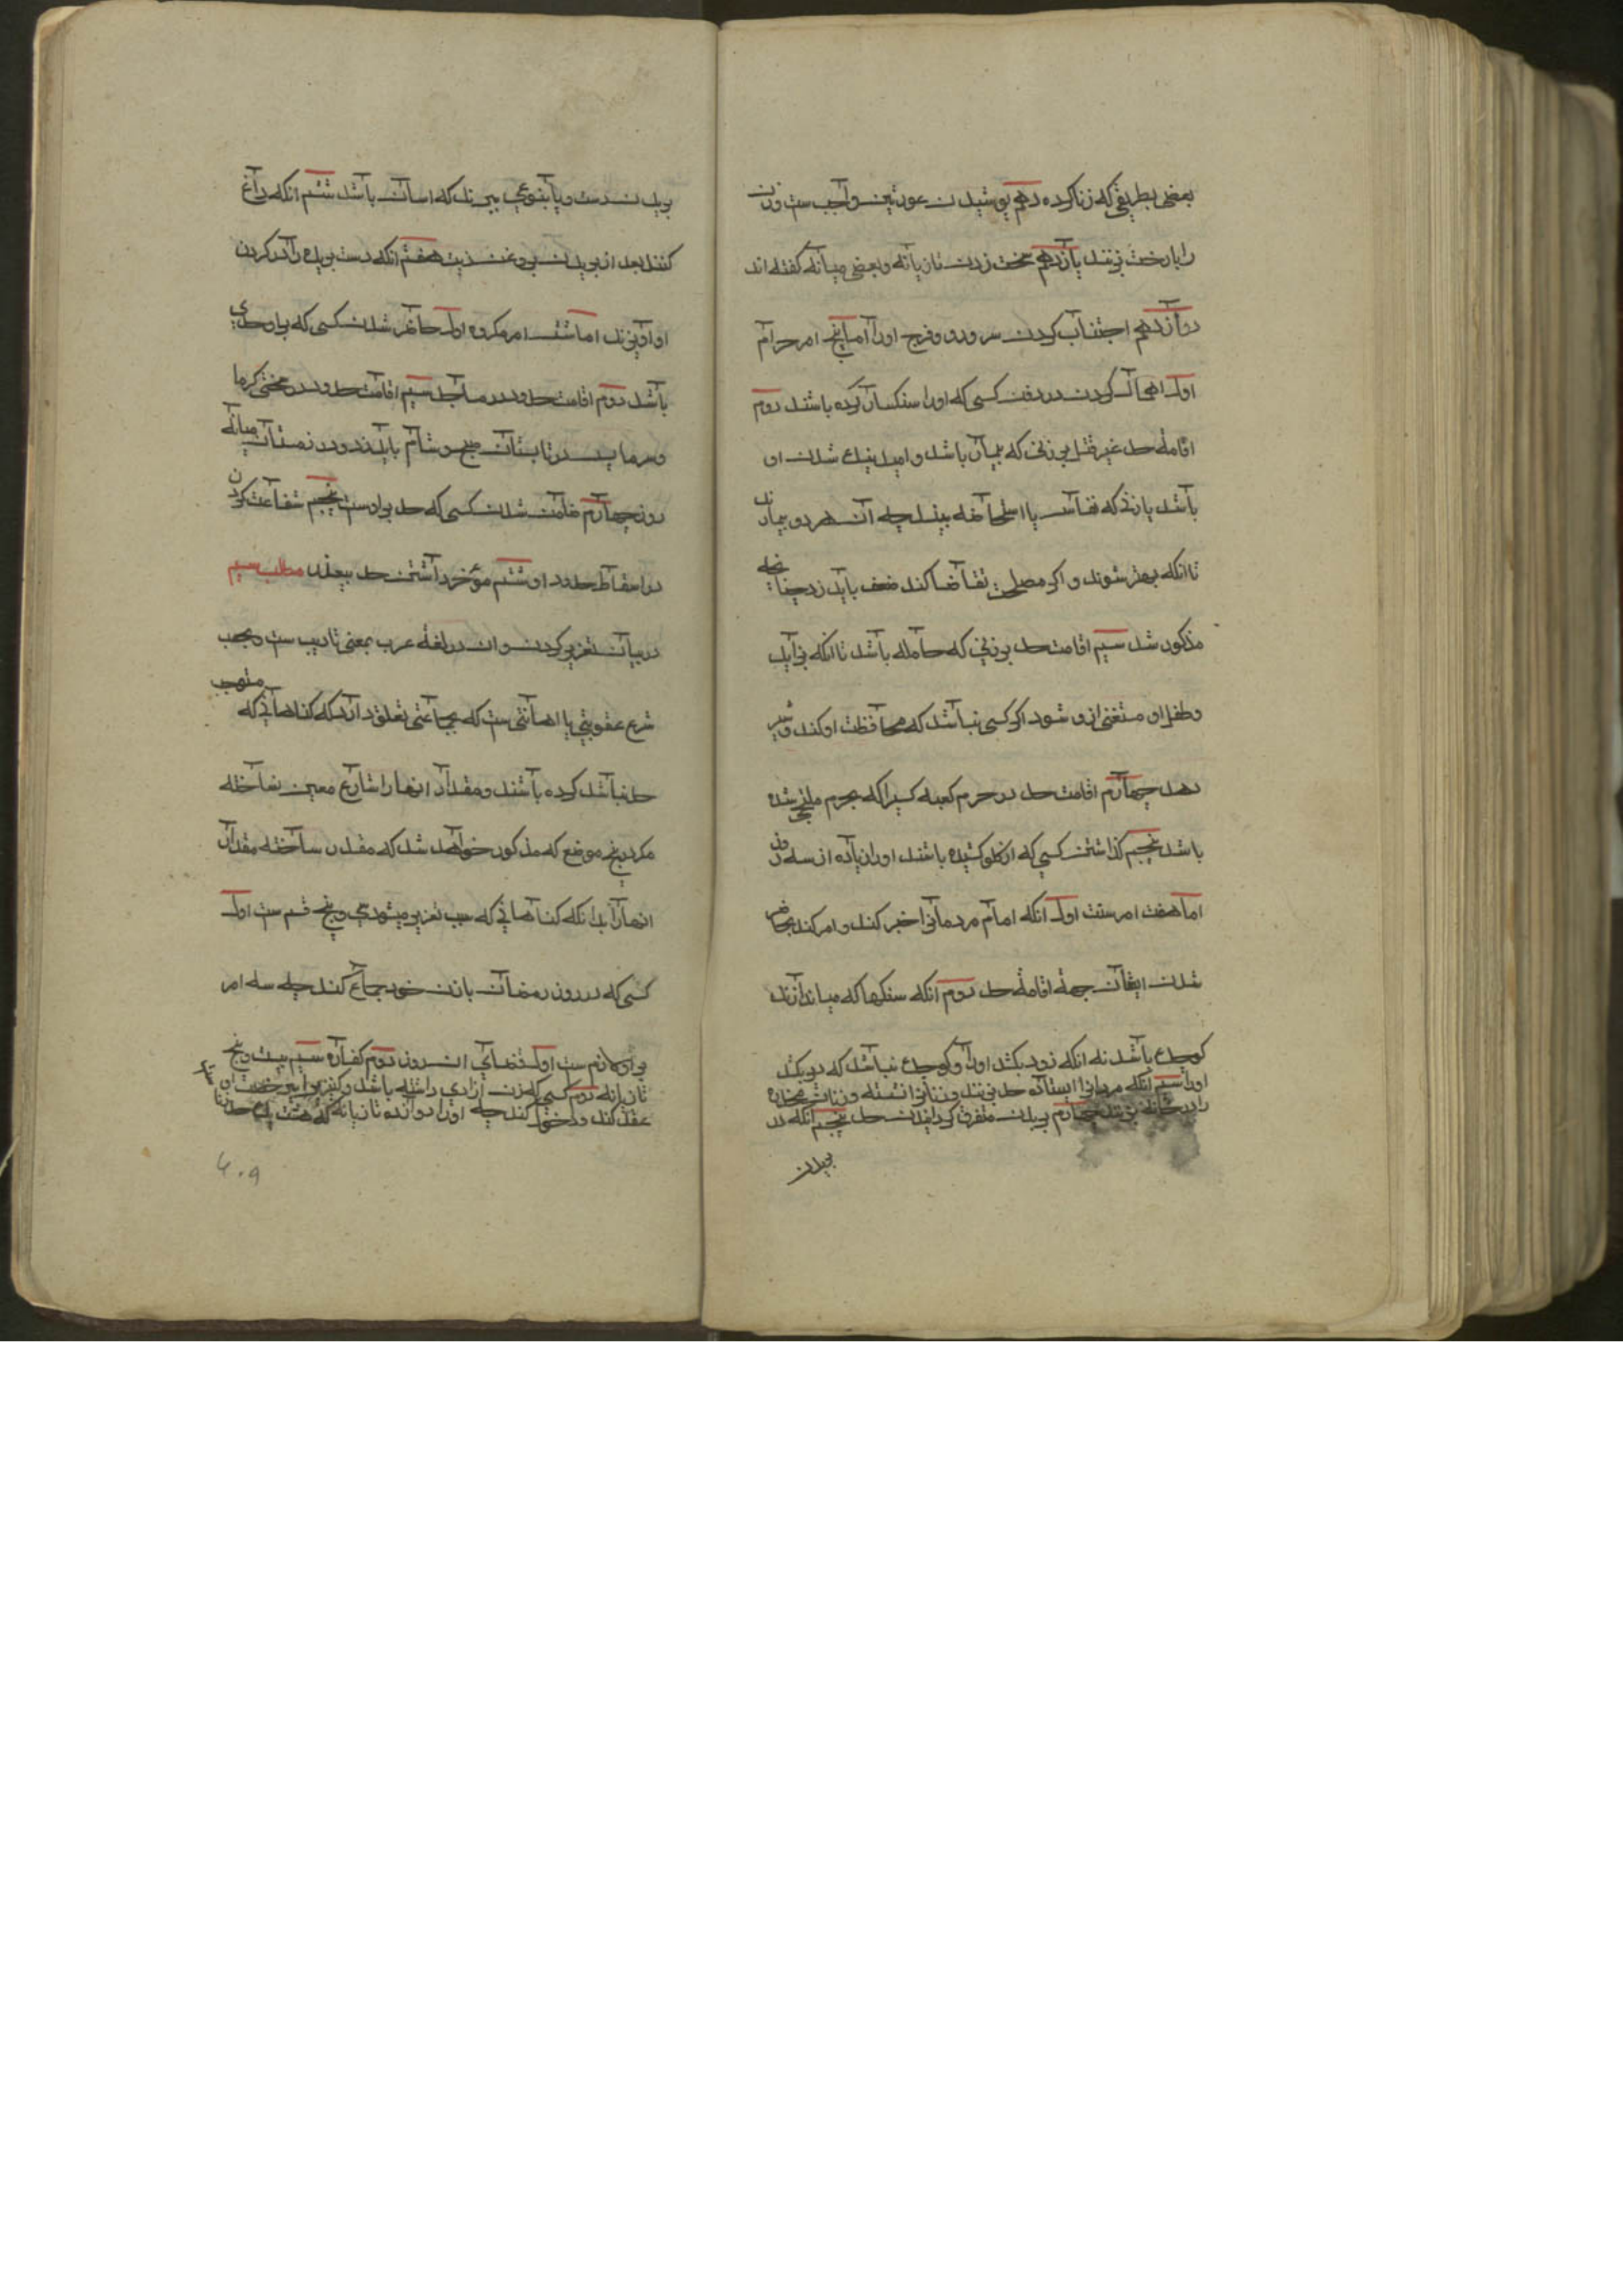 بعضی بطریقی که زنا کرده دهم پوشیدن عورتین واجب ست و زن
را با رخت بزنند یازدهم سخت زدن تازیانه و بعضی میانه گفته اند
دوازدهم اجتناب کردن سر و رو و فرج او را اما پنج امر حرام
اول اهمال کردن در دفن کسی که او را سنکسار کرده باشند دوم
اقامهٔ حد غیر قتل بر زنی که بیمار باشد و امید نیک شدن او
باشد یا زنی که نفاس یا استحاضه بیند چه آن هر دو بیمارند
تا انکه بهتر شوند و اکر مصلحت تقاضا کند ضغث باید زد چنانچه
مذکور شد سیم اقامت حد بر زنی که حامله باشد تا انکه بزاید
و طفل او مستغنی ازو شود اکر کسی نباشد که محافظت او کند و شیر
دهد چهارم اقامت حد در حرم کعبه کسیرا که بحرم ملتجی شده
باشد پنجم کذاشتن کسی که از کلو کشیده باشند او را زیاده از سه روز
اما هفت امر سنت اول انکه امام مردمانرا خبر کند و امر کند بحاضر
شدن ایشان جههٔ اقامهٔ حد دوم انکه سنکها که میاندازند
کوچک باشد نه انکه زود بکشد او را و کوچک نباشد که دیر بکشد
او را سیم انکه مردانرا ایستاده حد بزنند و زنانرا نشسته و زنان مخدره
را در خانه بزنند چهارم بریدن متفرق کردانیدن حد پنجم انکه در
بریدن
بریدن دست و پا بنوعی ببرند که اسان باشد ششم انکه داغ
کنند بعد از بریدن بروغن زیت هفتم انکه دست بریده را در کردن
او اویزند اما شش امر مکروه اول حاضر شدن کسی که برو حدی
باشد دوم اقامت حدود در مساجد سیم اقامت حدود در سختی کرما
و سرما پس در تابستان صبح و شام باید زد و در زمستان میانهٔ
روز چهارم ضامن شدن کسی که حد بر اوست پنجم شفاعت کردن
در اسقاط حدود او ششم مؤخر داشتن حد بیعذر مطلب سیم
در بیان تعزیر کردن و ان در لغهٔ عرب بمعنی تادیب ست و بحسب
شرع عقوبتی یا اهانتی ست که بجماعتی تعلق دارد که کناهانی که مستوجب
حد نباشد کرده باشند و مقدار انها را شارع معین نساخته
مکر در پنج موضع که مذکور خواهد شد که مقدر ساخته مقدار
انها را بدانکه کناهانی که سبب تعزیر میشود سی و پنج قسم ست اول
کسی که در روز رمضان با زن خود جماع کند چه سه امر
بر او لازم ست اول قضای ان روز دوم کفاره سیم بیست و پنج
تازیانه دوم کسی که زن ازادی داشته باشد و کنیز برا بی رخصت او
عقد کند و دخول کند چه او را دوازده تازیانه که هشت یک حد زنا
4.9